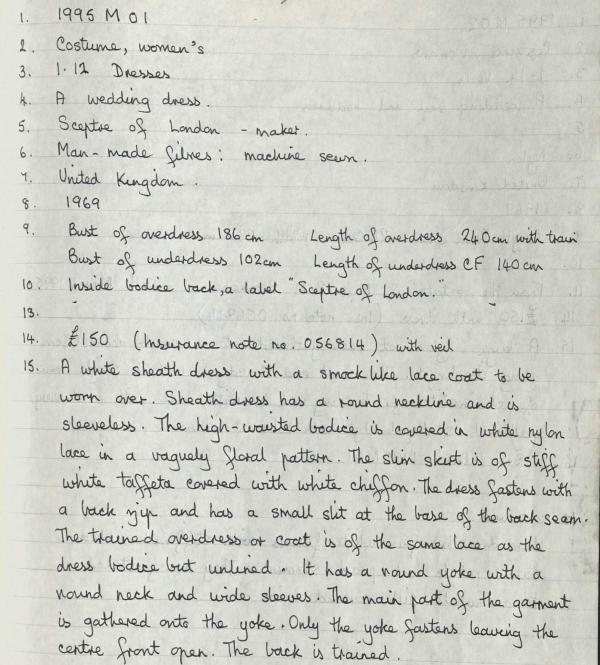 1. 1995 M 01
2. Costume, women's
3. 1.12 Dresses
4. A wedding dress.
5. Sceptre of London - maker.
6. Man-made fibres: machine sewn.
7. United Kingdom.
8. 1969
9. Bust of overdress 186cm Length of overdress 240cm with train
Bust of underdress 102cm Length of underdress CF 140cm
10. Inside bodice back, a label "Sceptre of London."
13.
14. £150 (Insurance note no. 056814) with veil
15. A white sheath dress with a smocklike lace coat to be
worn over. Sheath dress has a round neckline and is
sleeveless. The high-waisted bodice is covered in white nylon
lace in a vaguely floral pattern. The slim skirt is of stiff
white taffeta covered with white chiffon. The dress fastens with
a back zip and has a small slit at the base of the back seam.
The trained overdress or coat is of the same lace as the
dress bodice but unlined. It has a round yoke with a
round neck and wide sleeves. The main part of the garment
is gathered onto the yoke. Only the yoke fastens leaving the
centre front open. The back is trained.